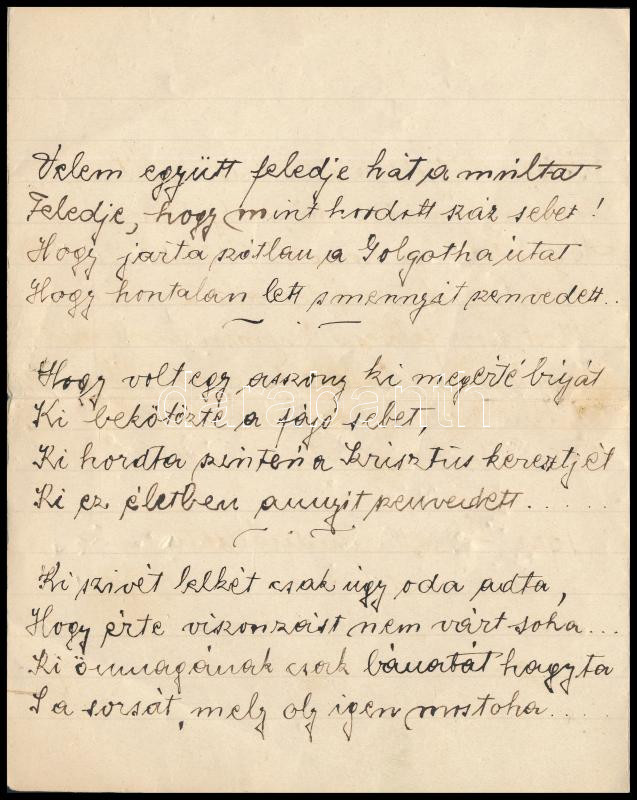 Velem együtt feledje hát a múltat
Feledje, hogy mint hordott száz sebet!
Hogy járta szótlan a Golgotha útat
Hogy hontalan lett s mennyit szenvedett..
Hogy volt egy asszony ki megérté búját
darabanth
Ki bekötözte a fájó sebet,
Ki hordta szintén a Krisztus keresztjét
Ki ez életben annyit szenvedett......
Ki szivét lelkét csak úgy oda adta,
Hogy érte viszonzást nem várt soha...
Ki önmagának csak bánatát hagyta
S a sorsát, mely oly igen mostoha.....